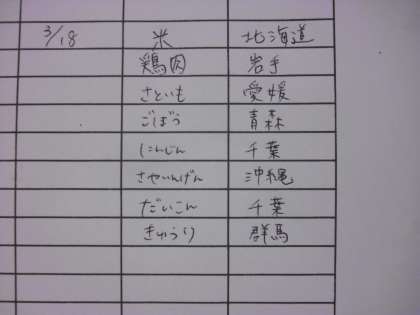 3/18 米 北海道
鶏肉 岩手
さといも 愛媛
ごぼう 青森
にんじん 千葉
さやいんげん 沖縄
だいこん 千葉
きゅうり 群馬